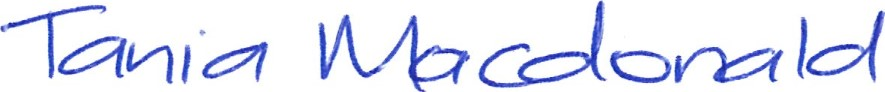 Tania Macdonald